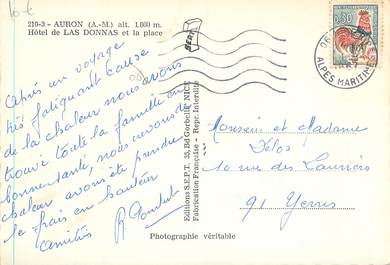 10-€
210-3 - AURON (A.-M.) alt. 1.600 m.
Hôtel de LAS DONNAS et la place
0,30
06
ALPES MARITIMES
Après un voyage
très fatiguant cause
de la chaleur nous avons
trouvé toute la famille en
bonne santé, nous revenons de
chaleur avons été prendre
le frais en hauteur
Amitiés
Editions S.E.P.T. 35, Bd Gorbella NICE
Fabrication Française - Repr. Interdite
Monsieur et Madame
10 rue des Lauriers
91 Yerres
Photographie véritable